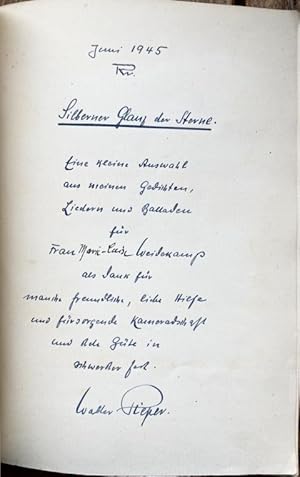 Juni 1945
Kr.
Silberner Glanz der Sterne.
Eine kleine Auswahl
aus meinen Gedichten,
Liedern und Balladen
für
Frau Marie-Luise Weidekamp
als Dank für
manche freundliche, liebe Hilfe
und fürsorgende Kameradschaft
und stete Güte in
schwerster Zeit.
Walter Pieper.